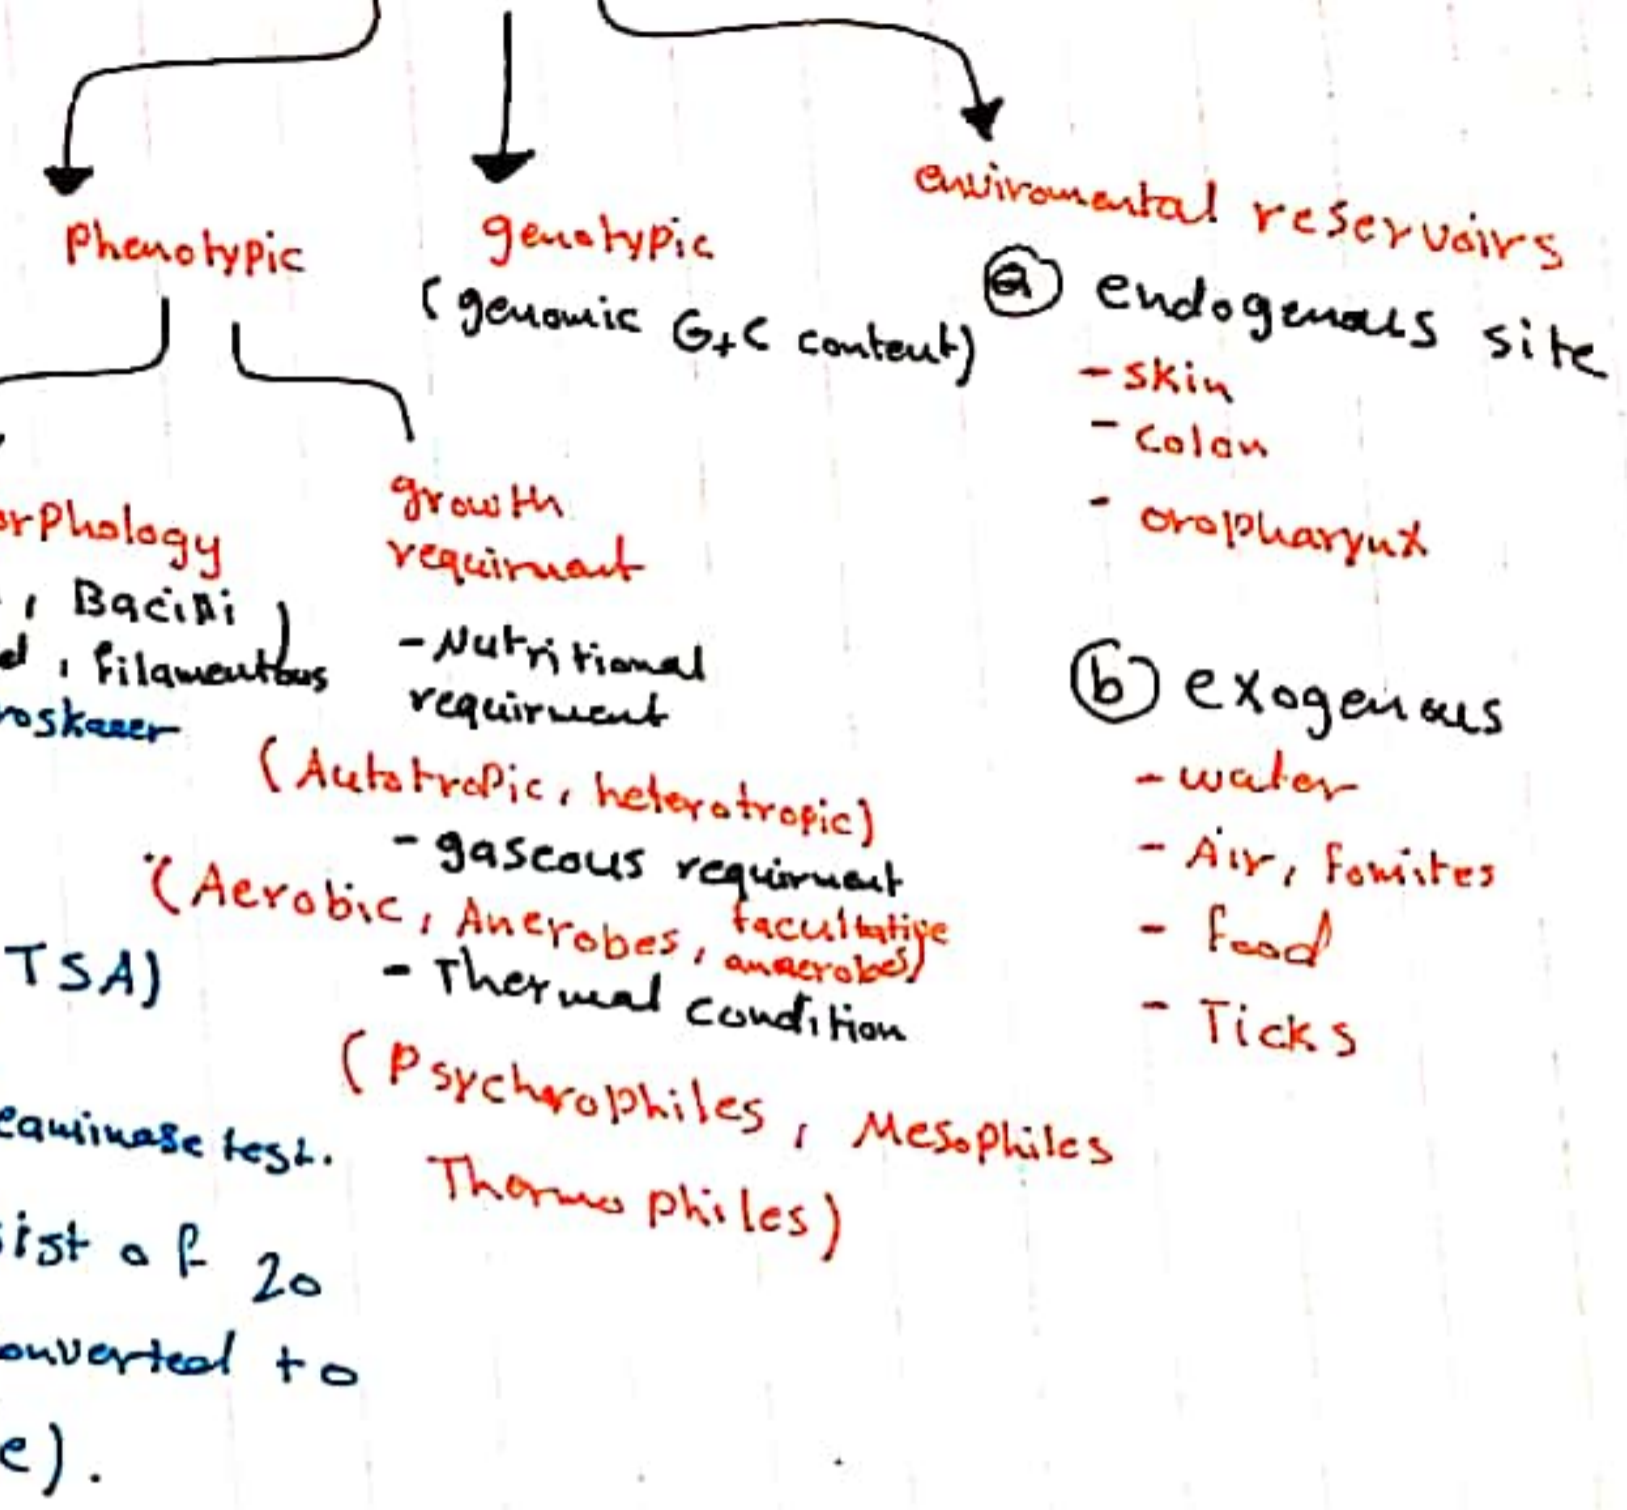 Phenotypic
genotypic
(genomic G+C content)
enviromental reservoirs
a endogenous site
- skin
- Colon
- oropharynx
b exogenous
- water
- Air, Fomites
- food
- Ticks
orphology
, Bacilli )
ed , filamentous
growth
requirment
- Nutritional
requirment
(Autotropic, heterotropic)
- gaseous requirment
(Aerobic, Anerobes, facultative
anaerobes)
- Thermal condition
(Psychrophiles, Mesophiles
Thermophiles)
TSA)
eaminase test.
ist of 20
onverted to
e).